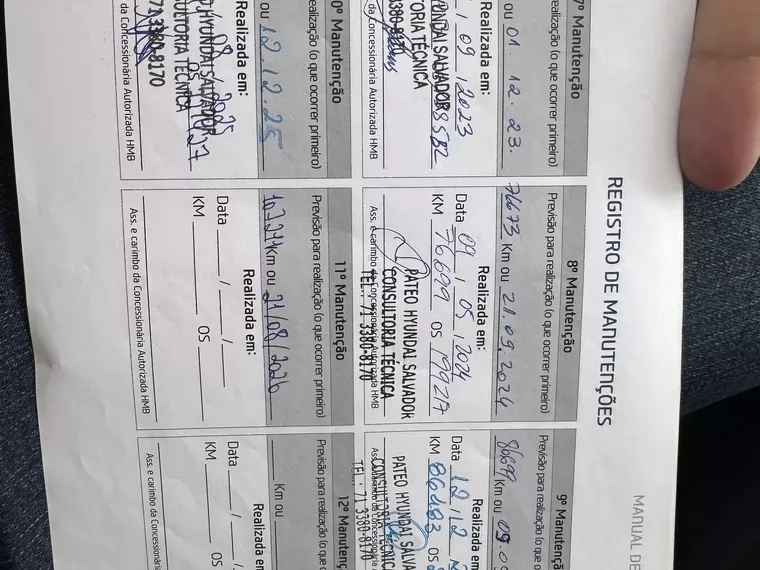 MANUAL DE
REGISTRO DE MANUTENÇÕES
7º Manutenção
Previsão para realização (o que ocorrer primeiro)
ou 01.12.23.
Realizada em:
/ 09 / 2023
HYUNDAI SALVADOR
TÉCNICA
da Concessionária Autorizada HMB
8º Manutenção
Previsão para realização (o que ocorrer primeiro)
76673 Km ou 21.09.2024
Realizada em:
Data 09 / 05 / 2024
KM 76699 OS
PATEO HYUNDAI SALVADOR
CONSULTORIA TÉCNICA
TEL.: 71 3380-8170
Ass. e carimbo da Concessionária Autorizada HMB
9º Manutenção
Previsão para realização (o que o
86699 Km ou 09.0
Realizada em:
Data 12 / 12
KM 86483 OS
PATEO HYUNDAI SALVA
CONSULTORIA TÉCNIC
TEL.: 71 3380-8170
0º Manutenção
Previsão para realização (o que ocorrer primeiro)
ou 12.12.25
Realizada em:
HYUNDAI SALVADOR
SULTORIA TÉCNICA
71 3380-8170
da Concessionária Autorizada HMB
11º Manutenção
Previsão para realização (o que ocorrer primeiro)
Km ou 21/08/2026
Realizada em:
Data ___ / ___ / ___
KM ___ OS ___
Ass. e carimbo da Concessionária Autorizada HMB
12º Manutenç
Previsão para realização (o que o
Km ou
Realizada em
Data ___ / ___ /
KM ___ OS
Ass. e carimbo da Concessionári